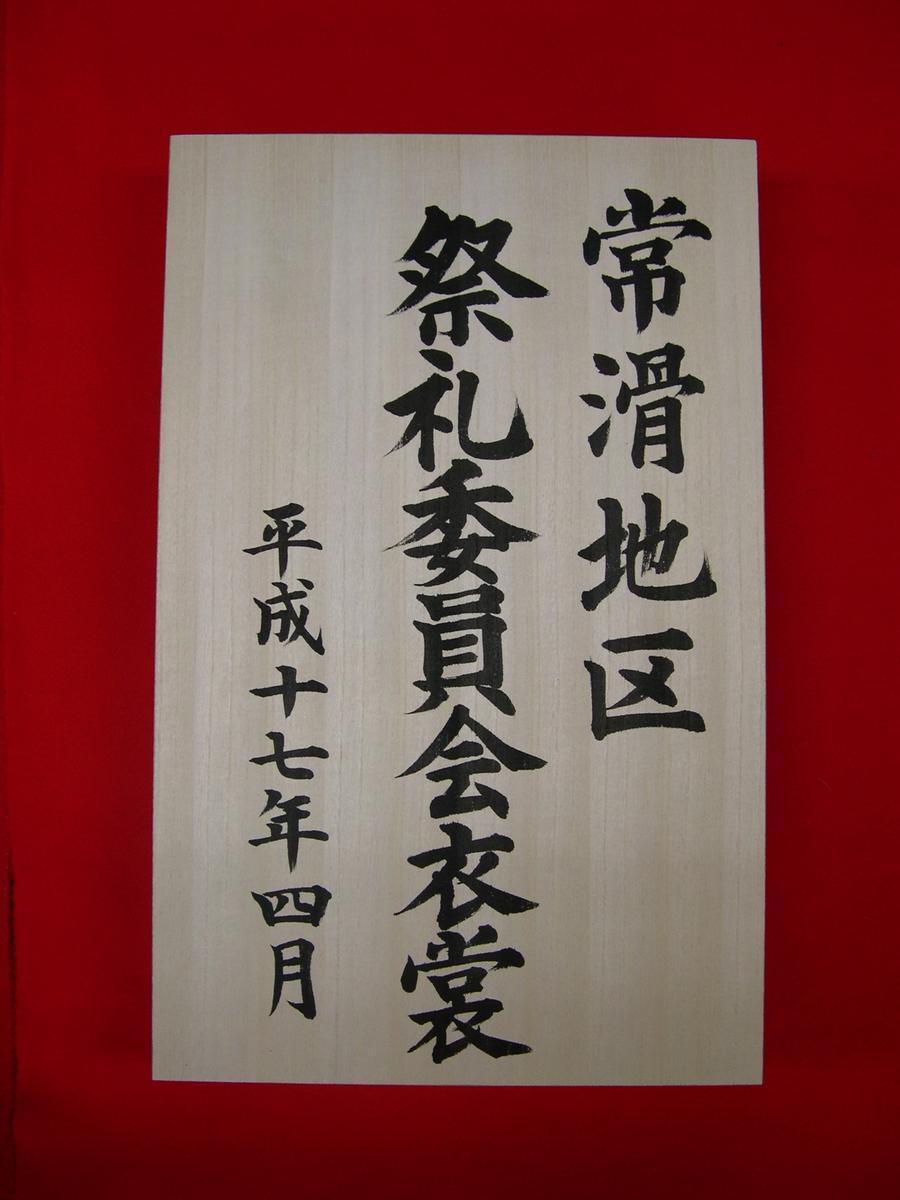 常滑地区
祭礼委員会衣裳
平成十七年四月